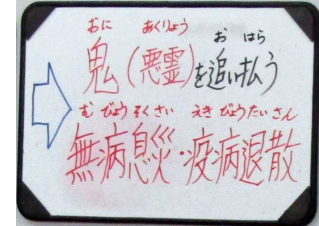 おに あくりょう お はら
鬼(悪霊)を追い払う
む びょう そく さい えき びょう たい さん
無病息災・疫病退散